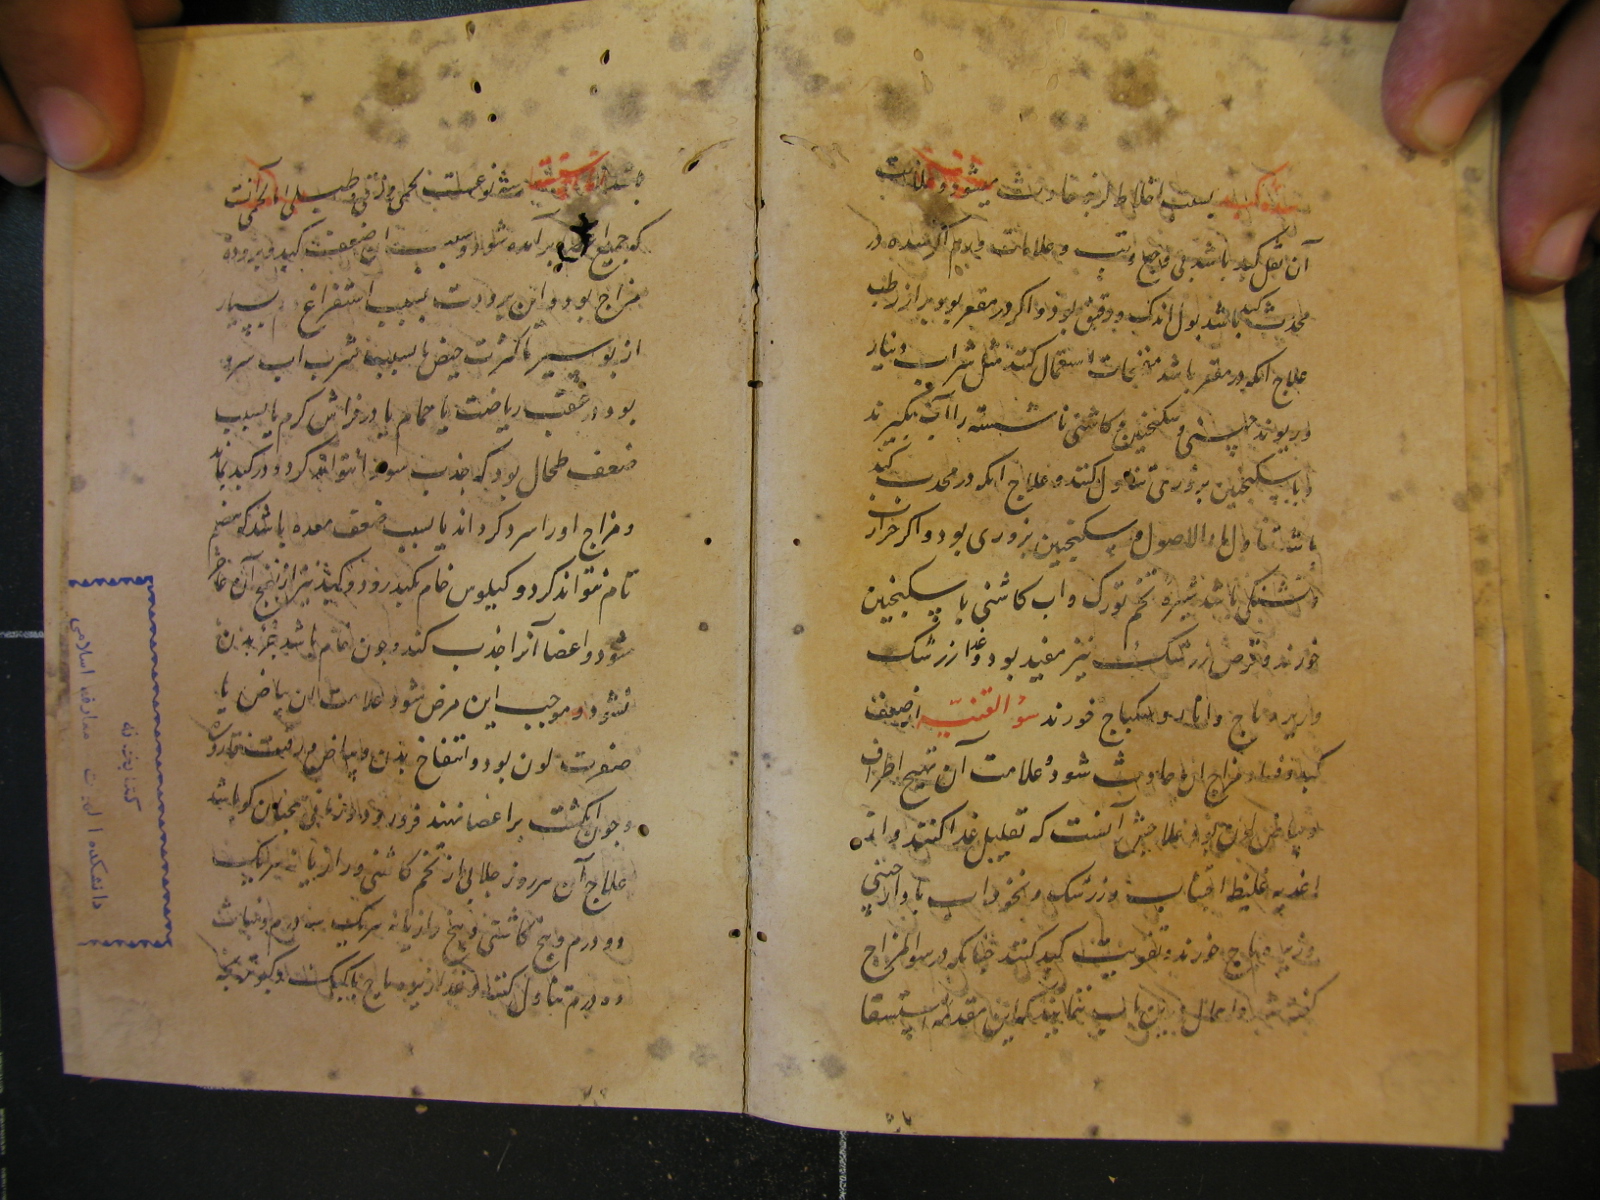 سده کبد بسبب اخلاط لزجه حادث میشود و علامت
آن ثقل کبد باشد بی وجع و تب و علامات ورم اگر سده در
محدب کبد باشد بول اندک و رقیق بود و اگر در مقعر بود براز رطب
علاج آنکه در مقعر باشد مفتحات استعمال کنند مثل شراب دینار
و ریوند چینی و سکنجبین و کاشنی ناشسته را آب بگیرند
و با سکنجبین بزوری تناول کنند و علاج آنکه در محدب کبد
باشد تناول ماء الاصول و سکنجبین بزوری بود و اگر حرارت
و تشنگی باشد شیره تخم تورک و آب کاشنی با سکنجبین
خورند و قرص زرشک نیز مفید بود و غذا زرشک
و زیرباج و انار و سکباج خورند سوء القنیه از ضعف
کبد و فساد مزاج آن حادث شود و علامت آن تهیج اطراف
و بیاض لون بود و علاجش آنست که تقلیل غذا کنند و از
اغذیه غلیظ اجتناب و زرشک و نخوداب با دارچینی
و زیرباج خورند و تقویت کبد کنند چنانکه در سوء المزاج
گفته شد و اهمال درین باب ننمایند که این مقدمه استسقا
باشد استسقا سه نوعست لحمی و زقی و طبلی اما لحمی آنست
که جمیع اعضا برآمده شود و سبب آن ضعف کبد و برودة
مزاج بود و این برودت بسبب استفراغ بسیار
از بواسیر یا کثرت حیض یا بسبب شرب آب سرد
بود در عقب ریاضت یا حمام یا در فراش گرم یا بسبب
ضعف طحال بود که جذب سودا نتواند کرد و در کبد بماند
و مزاج او را سرد گرداند یا بسبب ضعف معده باشد که هضم
تام نتواند کرد و کیلوس خام بکبد رود و کبد نیز از نضج آن عاجز
شود و اعضا آنرا جذب کند و چون خام باشد جزء بدن
نشود و موجب این مرض شود علامت آن بیاض یا
صفرت لون بود و انتفاخ بدن و بیاض و رقت قاروره
و چون انگشت بر اعضا نهند فرو رود و زمانی همچنان کو باشد
علاج آن هر روز جلابی از تخم کاشنی و رازیانه هر یک
دو درم و بیخ کاشنی و بیخ رازیانه هر یک سه درم و نبات
ده درم تناول کنند و غذا زیره باج با کبک و کبوتر بچه
کتابخانه
دانشکده الهیات و معارف اسلامی